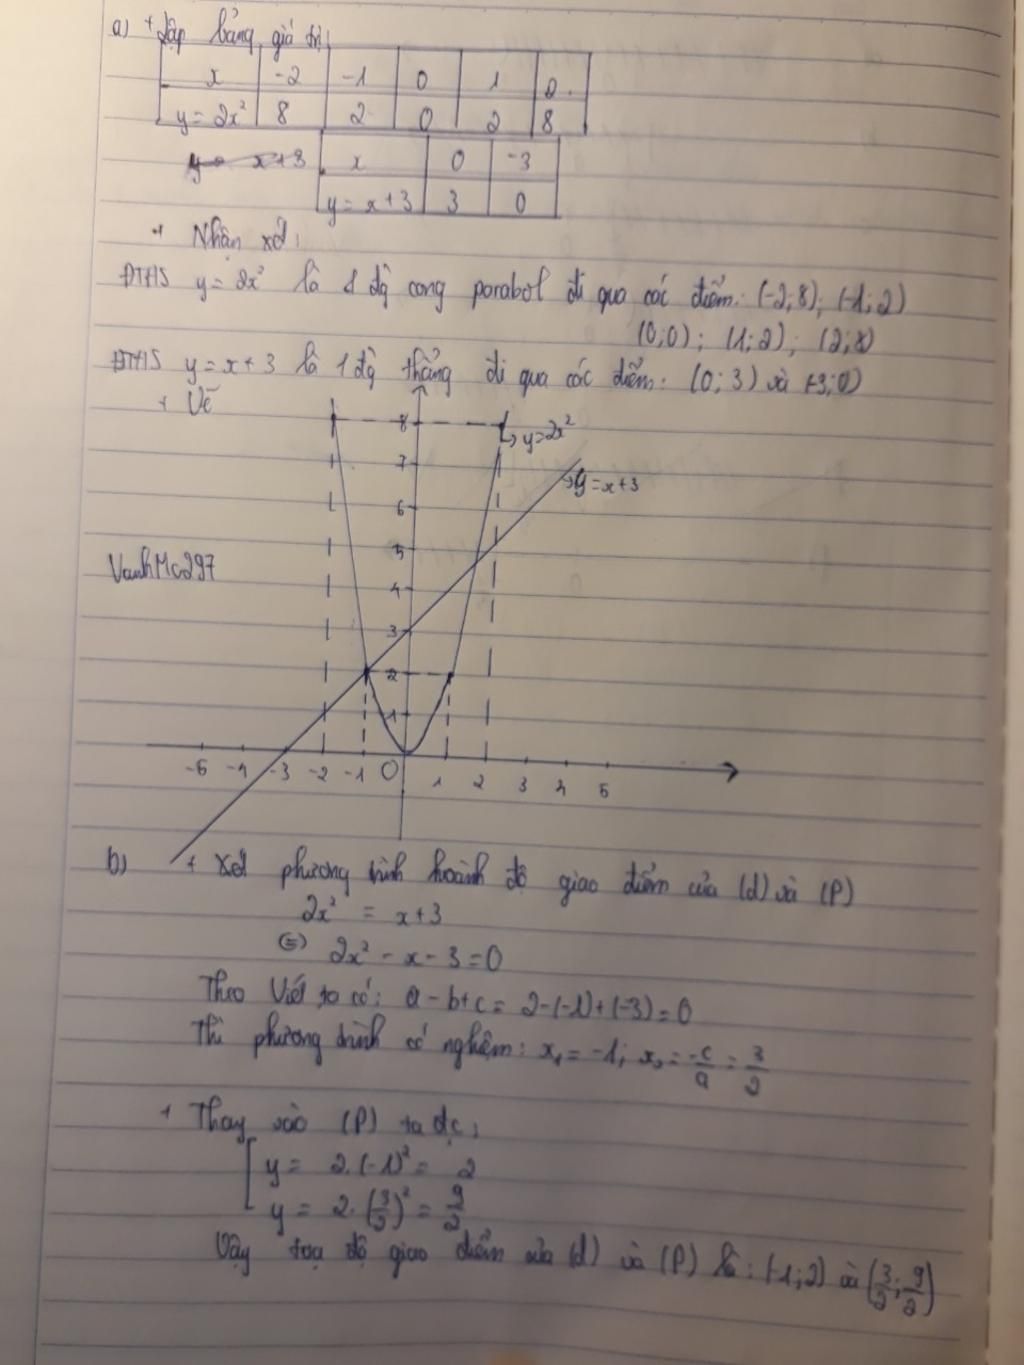 a) + Lập bảng giá trị:
x -2 -1 0 1 2
y = 2x² 8 2 0 2 8
y = x+3
x 0 -3
y = x+3 3 0
+ Nhận xét:
ĐTHS y = 2x² là 1 đg cong parabol đi qua các điểm: (-2;8); (-1;2)
(0;0); (1;2); (2;8)
ĐTHS y = x+3 là 1 đg thẳng đi qua các điểm: (0;3) và (-3;0)
+ Vẽ
8
y=2x²
7
y=x+3
6
5
VanhMc297
4
3
2
1
-5 -4 -3 -2 -1 O 1 2 3 4 5
b) + Xét phương trình hoành độ giao điểm của (d) và (P)
2x² = x+3
(=) 2x² - x - 3 = 0
Theo Viét ta có: a - b + c = 2-(-1)+(-3) = 0
Thì phương trình có nghiệm: x₁ = -1; x₂ = -c/a = 3/2
+ Thay vào (P) ta đc:
y = 2.(-1)² = 2
y = 2.(3/2)² = 9/2
Vậy toạ độ giao điểm của (d) và (P) là: (-1;2) và (3/2; 9/2)